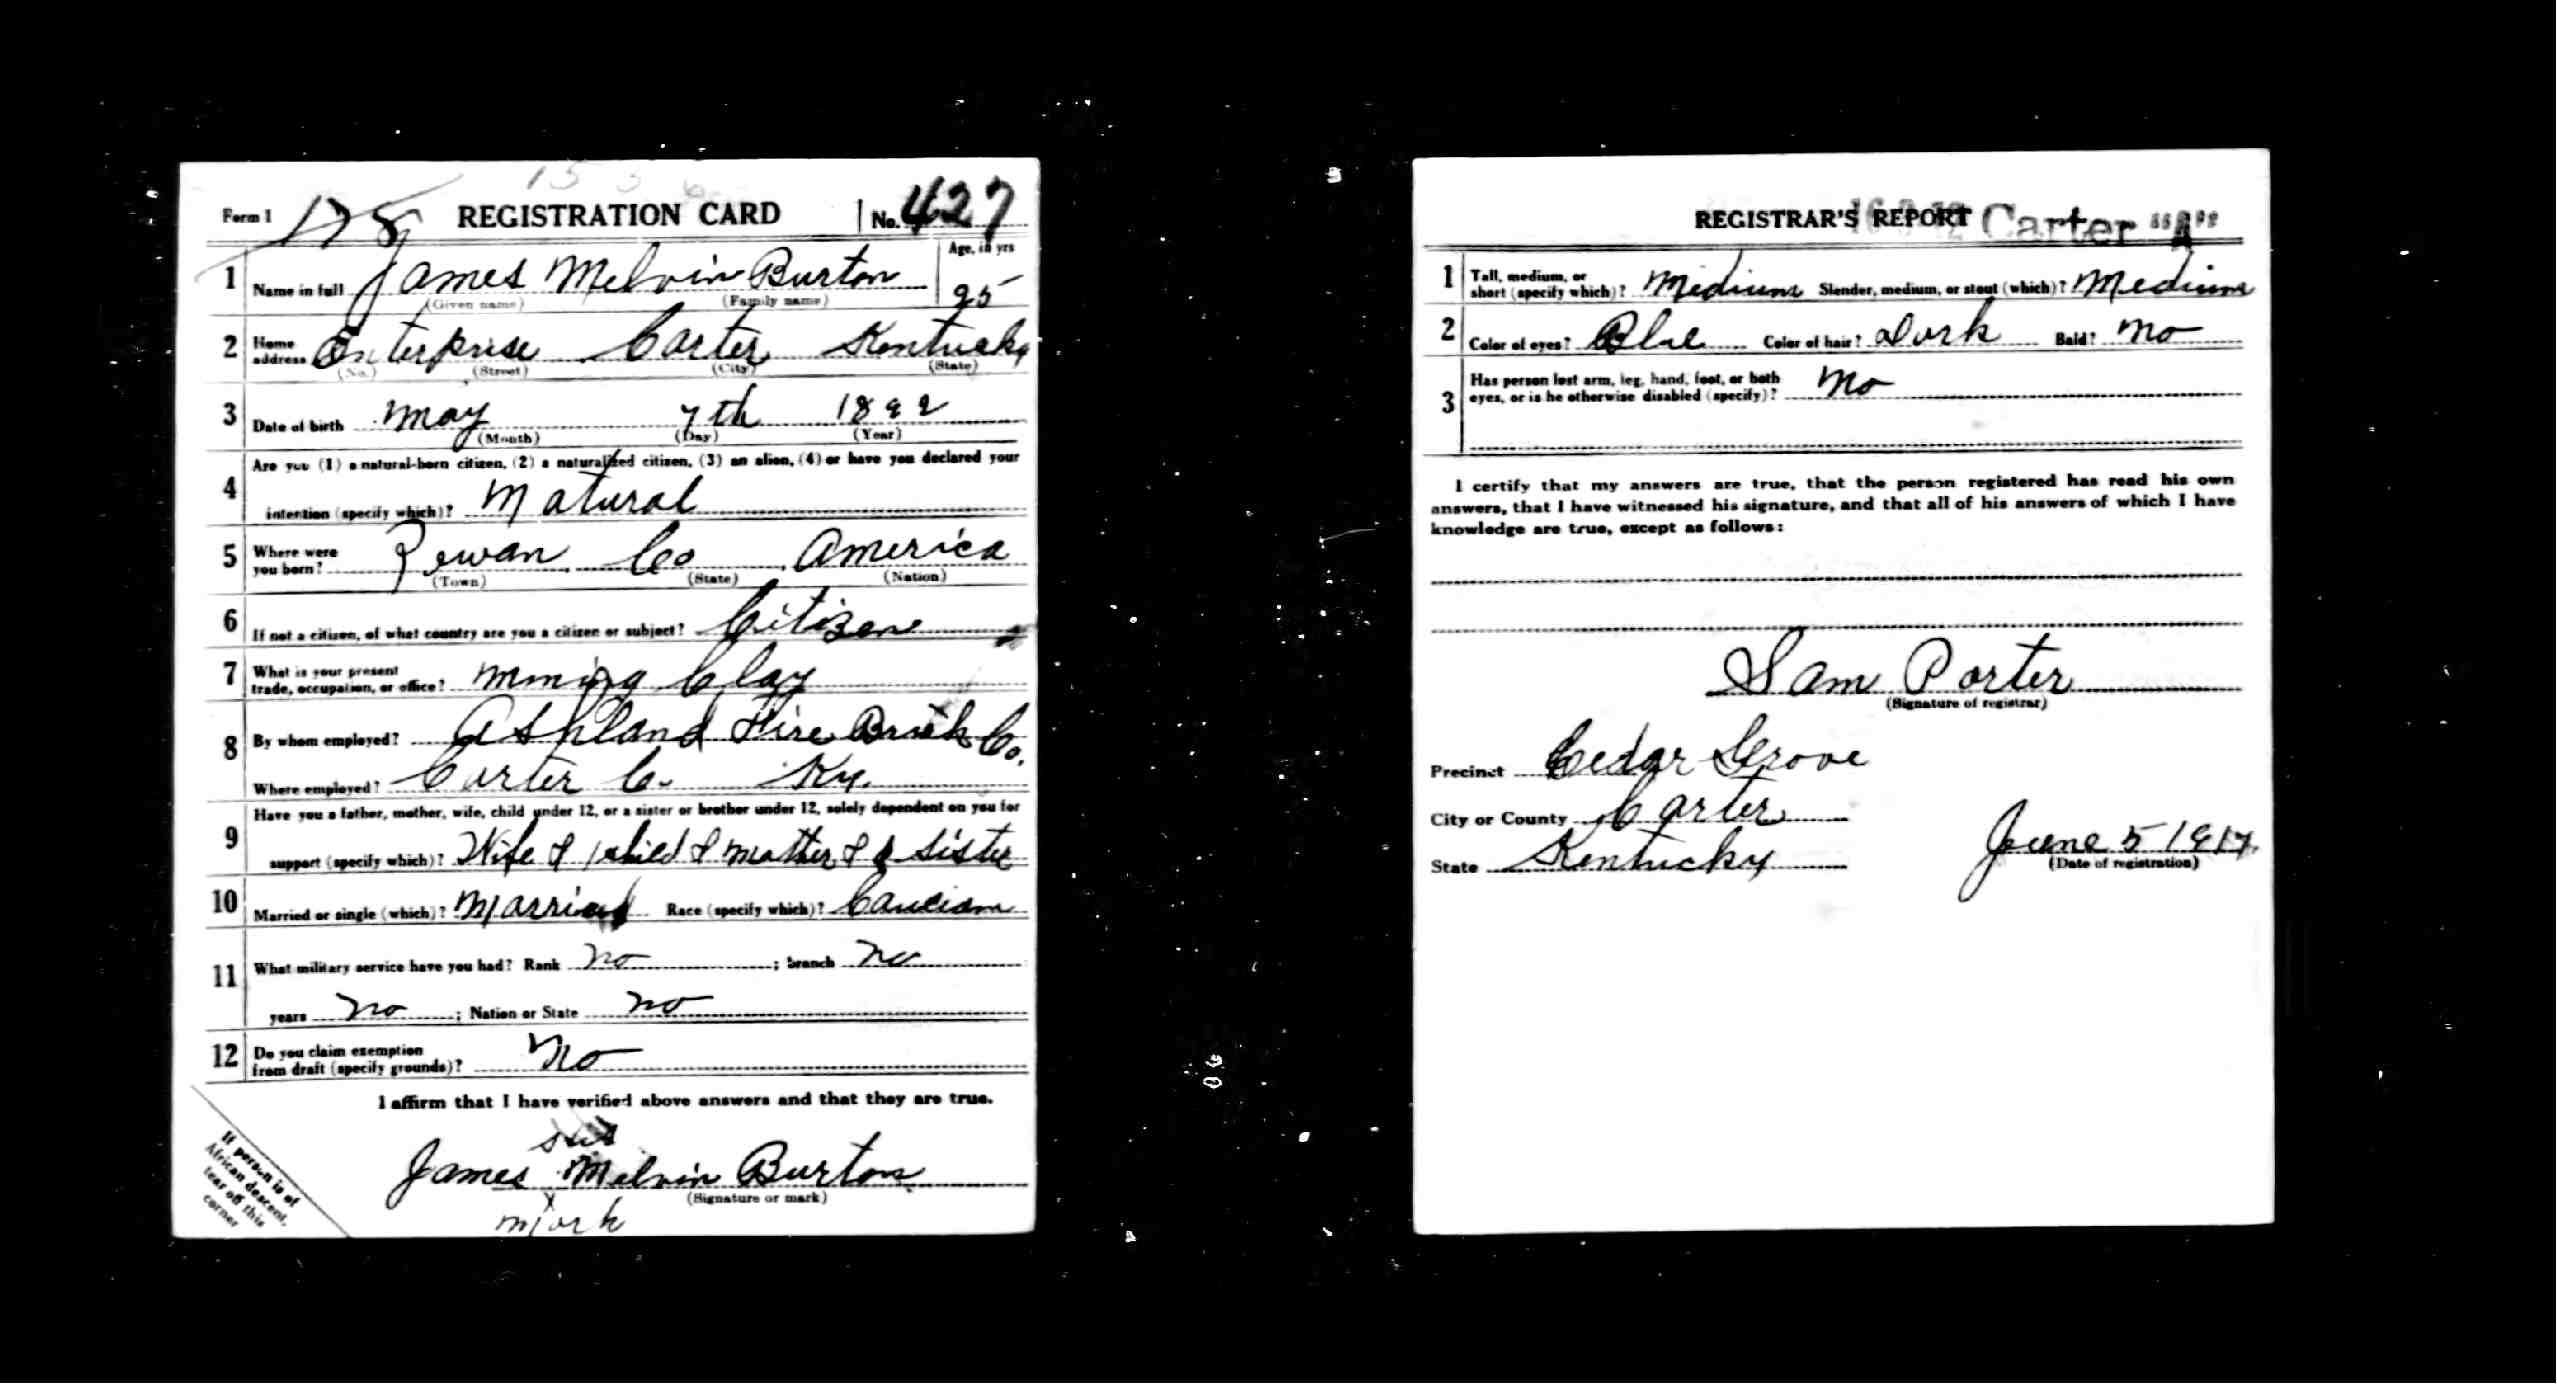 Form 1 178 REGISTRATION CARD No. 427
1 Name in full James Melvin Burton Age, in yrs 25
(Given name) (Family name)
2 Home address Enterprise Carter Kentucky
(No.) (Street) (City) (State)
3 Date of birth May 7th 1892
(Month) (Day) (Year)
Are you (1) a natural-born citizen, (2) a naturalized citizen, (3) an alien, (4) or have you declared your
4 intention (specify which)? Natural
5 Where were you born? Rowan Co America
(Town) (State) (Nation)
6 If not a citizen, of what country are you a citizen or subject? Citizen
7 What is your present trade, occupation, or office? Mining Clay
8 By whom employed? Ashland Fire Brick Co.
Where employed? Carter Co. Ky.
Have you a father, mother, wife, child under 12, or a sister or brother under 12, solely dependent on you for
9 support (specify which)? Wife & 1 child & Mother & Sister
10 Married or single (which)? Married Race (specify which)? Caucian
11 What military service have you had? Rank no ; branch no
years no ; Nation or State no
12 Do you claim exemption from draft (specify grounds)? no
I affirm that I have verified above answers and that they are true.
James Melvin Burton
x (Signature or mark)
mark
If person is of
African descent,
tear off this
corner
REGISTRAR'S REPORT Carter "A"
1 Tall, medium, or short (specify which)? Medium Slender, medium, or stout (which)? Medium
2 Color of eyes? Blue Color of hair? Dark Bald? No
3 Has person lost arm, leg, hand, foot, or both eyes, or is he otherwise disabled (specify)? No
I certify that my answers are true, that the person registered has read his own
answers, that I have witnessed his signature, and that all of his answers of which I have
knowledge are true, except as follows:
Sam Porter
(Signature of registrar)
Precinct Cedar Grove
City or County Carter
State Kentucky June 5 1917
(Date of registration)